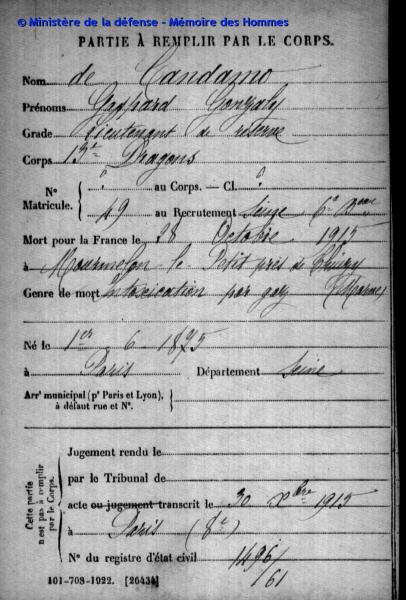 © Ministère de la défense - Mémoire des Hommes
PARTIE À REMPLIR PAR LE CORPS.
Nom de Candamo
Prénoms Gaspard Gonzaly
Grade Lieutenant de réserve
Corps 13e Dragons
N° Matricule.
" au Corps. — Cl. "
49 au Recrutement Seine 6e Beau
Mort pour la France le 28 Octobre 1915
à Mourmelon le Petit près de Thuizy (Marne)
Genre de mort Intoxication par gaz
Né le 1er 6 1875
à Paris Département Seine
Arrt municipal (pr Paris et Lyon),
à défaut rue et N°.
Cette partie n'est pas à remplir par le Corps.
Jugement rendu le
par le Tribunal de
acte ou jugement transcrit le 30 Xbre 1915
à Paris (8e)
N° du registre d'état civil 1496/
/61
101-708-1922. [26434]